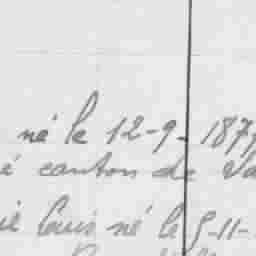 né le 12-9-187
é canton de Va
ie Louis né le 9-11-